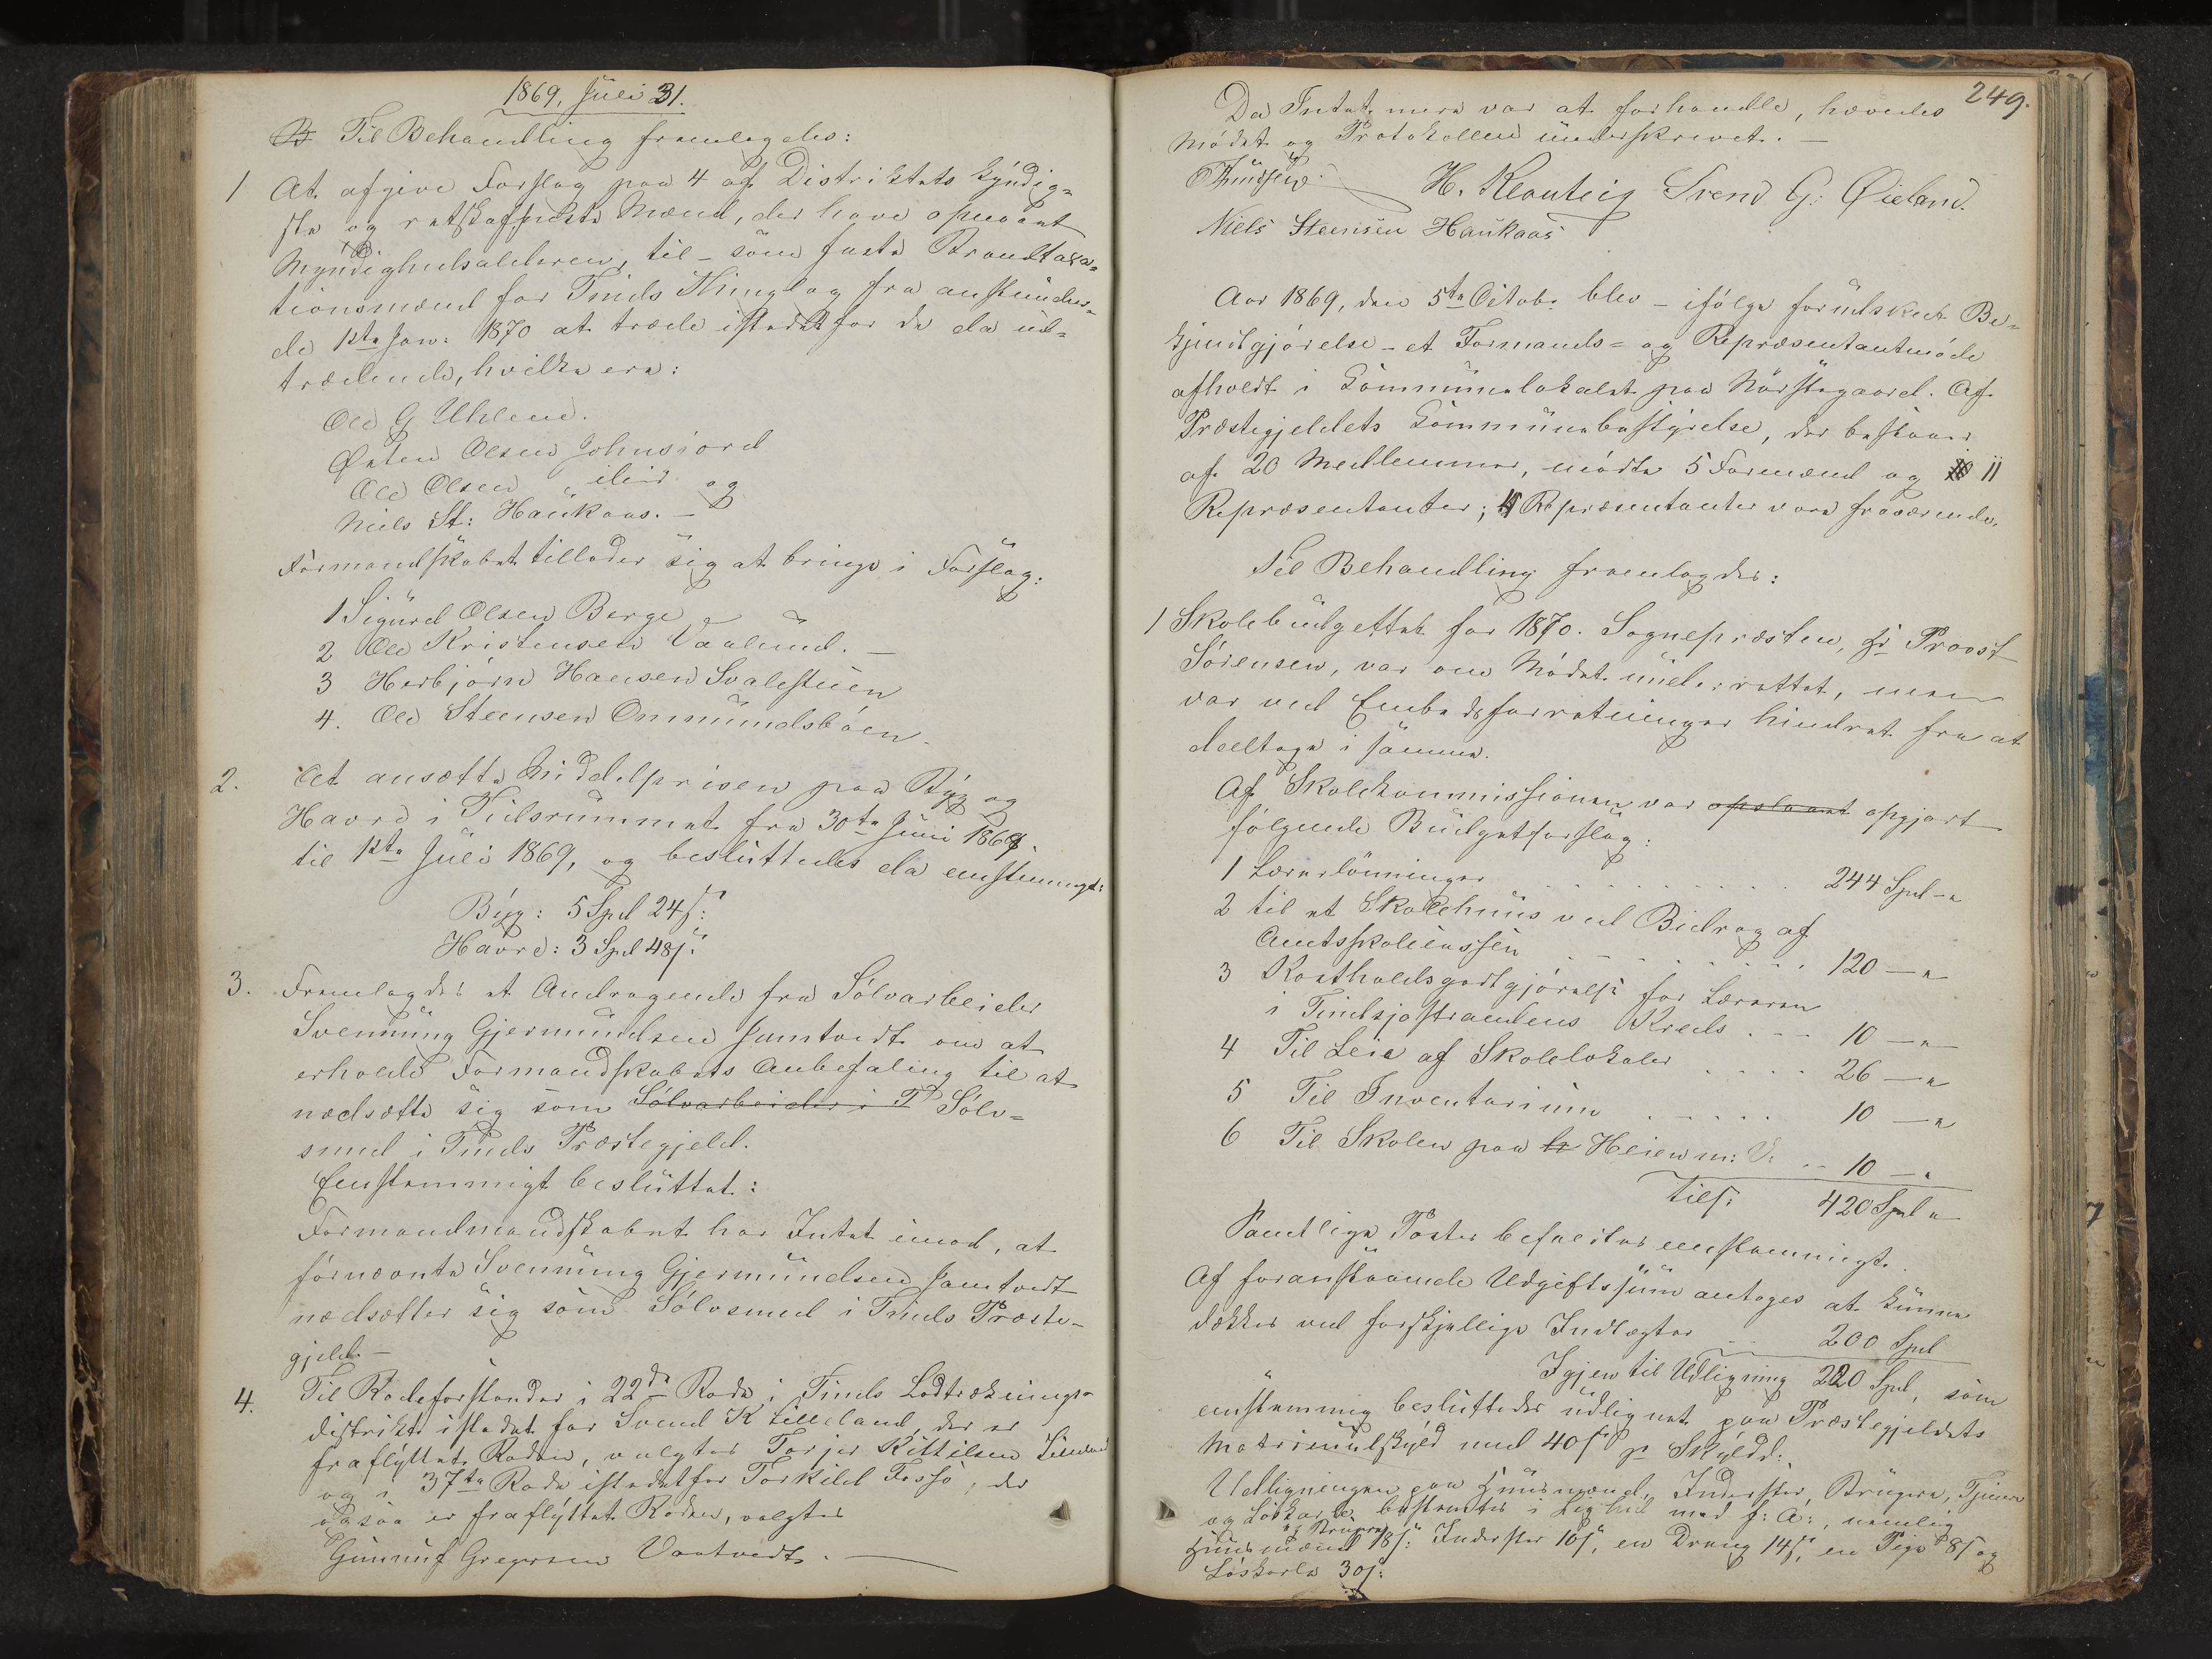 1869, Juli 31.
Til Behandling fremlagdes:
1 At afgive Forslag paa 4 af Distriktets kyndig-
ste og retskafneste Mænd, der have opnaaet
Myndighedsalderen, til – som faste Brandtaxa-
tionsmænd for Tinds Thinglag fra anstunden-
de 1ste Jan: 1870 at træde istedetfor de da ud-
trædende, hvilke ere:
Ole G Uhlene.
Østen Olsen Johnsjord
Ole Olsen og
Niels St: Haukaas. –
Formandskabet tillader sig at bringe i Forslag:
1 Sigurd Olsen Berge
2 Ole Kristensen Vaalund. –
3 Herbjørn Hansen Svalestuen
4. Ole Steensen Ommundsbøen.
2. At ansætte Middelprisen paa Byg og
Havre i Tidsrummet fra 30te Juni 1868
til 1ste Juli 1869, og besluttedes da enstemmigt:
Byg: 5 Spd 24 s:
Havre: 3 Spd 48 s:
3. Fremlagdes et Andragende fra Sølvarbeider
Svennung Gjermundsen Jamtvedt om at
erholde Formandskabets Anbefaling til at
nedsætte sig som Sølvarbeider i T Sølv-
smed i Tinds Præstegjeld.
Enstemmigt besluttet:
Formandmandskabet har Intet imod, at
førnævnte Svennung Gjermundsen Jamtvedt
nedsætter sig som Sølvsmed i Tinds Præste-
gjeld. –
4. Til Rodeforstander i 22de Rode i Tinds Lodtræknings-
distrikt istedet for Svend Killeland, der er
fraflyttet Roden, valgtes Torjer Kittilsen
og i 37te Rode istedetfor Torkild Fosso, der
ogsaa er fraflyttet Roden, valgtes
Gunnuf Gregersen Vaatvedt. –
249.
Da Intet mere var at forhandle, hævedes
Mødet og Protokollen underskrevet. –
H. Klonteig Svend G: Øieland.
Niels Steensen Haukaas
Aar 1869, den 5te Octobr blev – ifølge forudskeet Be-
kjendtgjørelse – et Formands- og Repræsentantmøde
afholdt i Kommunelokalet paa Nørstegaard. Af
Præstegjeldets Kommunebestyrelse, der bestaaer
af 20 Medlemmer, mødte 5 Formænd og 10 11
Repræsentanter; 4 Repræsentanter vare fraværende.
Til Behandling fremlagdes:
1 Skolebudgettet for 1870. Sognepræsten, Hr Provst
Sørensen, var om Mødet underrettet, men
var ved Embedsforretninger hindret fra at
deeltage i samme.
Af Skolekommissionen var opslaaet opgjort
følgende Budgetforslag:
1 Lærerlønninger . . . . . . . . . . 244 Spd – "
2 til et Skolehuus ved Bidrag af
Amtsskolekassen . . . . . . . . . 120 – "
3 Kostholdsgodtgjørelse for Læreren
i Tindsjøstrandens Kreds . . . 10 – "
4 Til Leie af Skolelokaler . . . . . 26 – "
5 Til Inventarium . . . . . . 10 – "
6 Til Skolen paa Heien m: V: . . 10 – "
Tils: 420 Spd "
Samtlige Poster besluttes enstemmigt.
Af foranstaaende Udgiftssum antoges at kunne
dækkes ved forskjellige Indtægter . . 200 Spd
Igjen til Udligning 220 Spd, som
enstemmig besluttedes udlignet paa Præstegjeldets
Matrikulskyld med 40 s pr Skylddl:
Udligningen paa Huusmænd, Inderster, Brugere, Tjenere
og Løskarle bestemtes i Lighed med f: A:, nemlig
og Brugere
Huusmænd 18 s: Inderster 10 s, en Dreng 14 s, en Pige 8 s og
Løskarle 30 s: